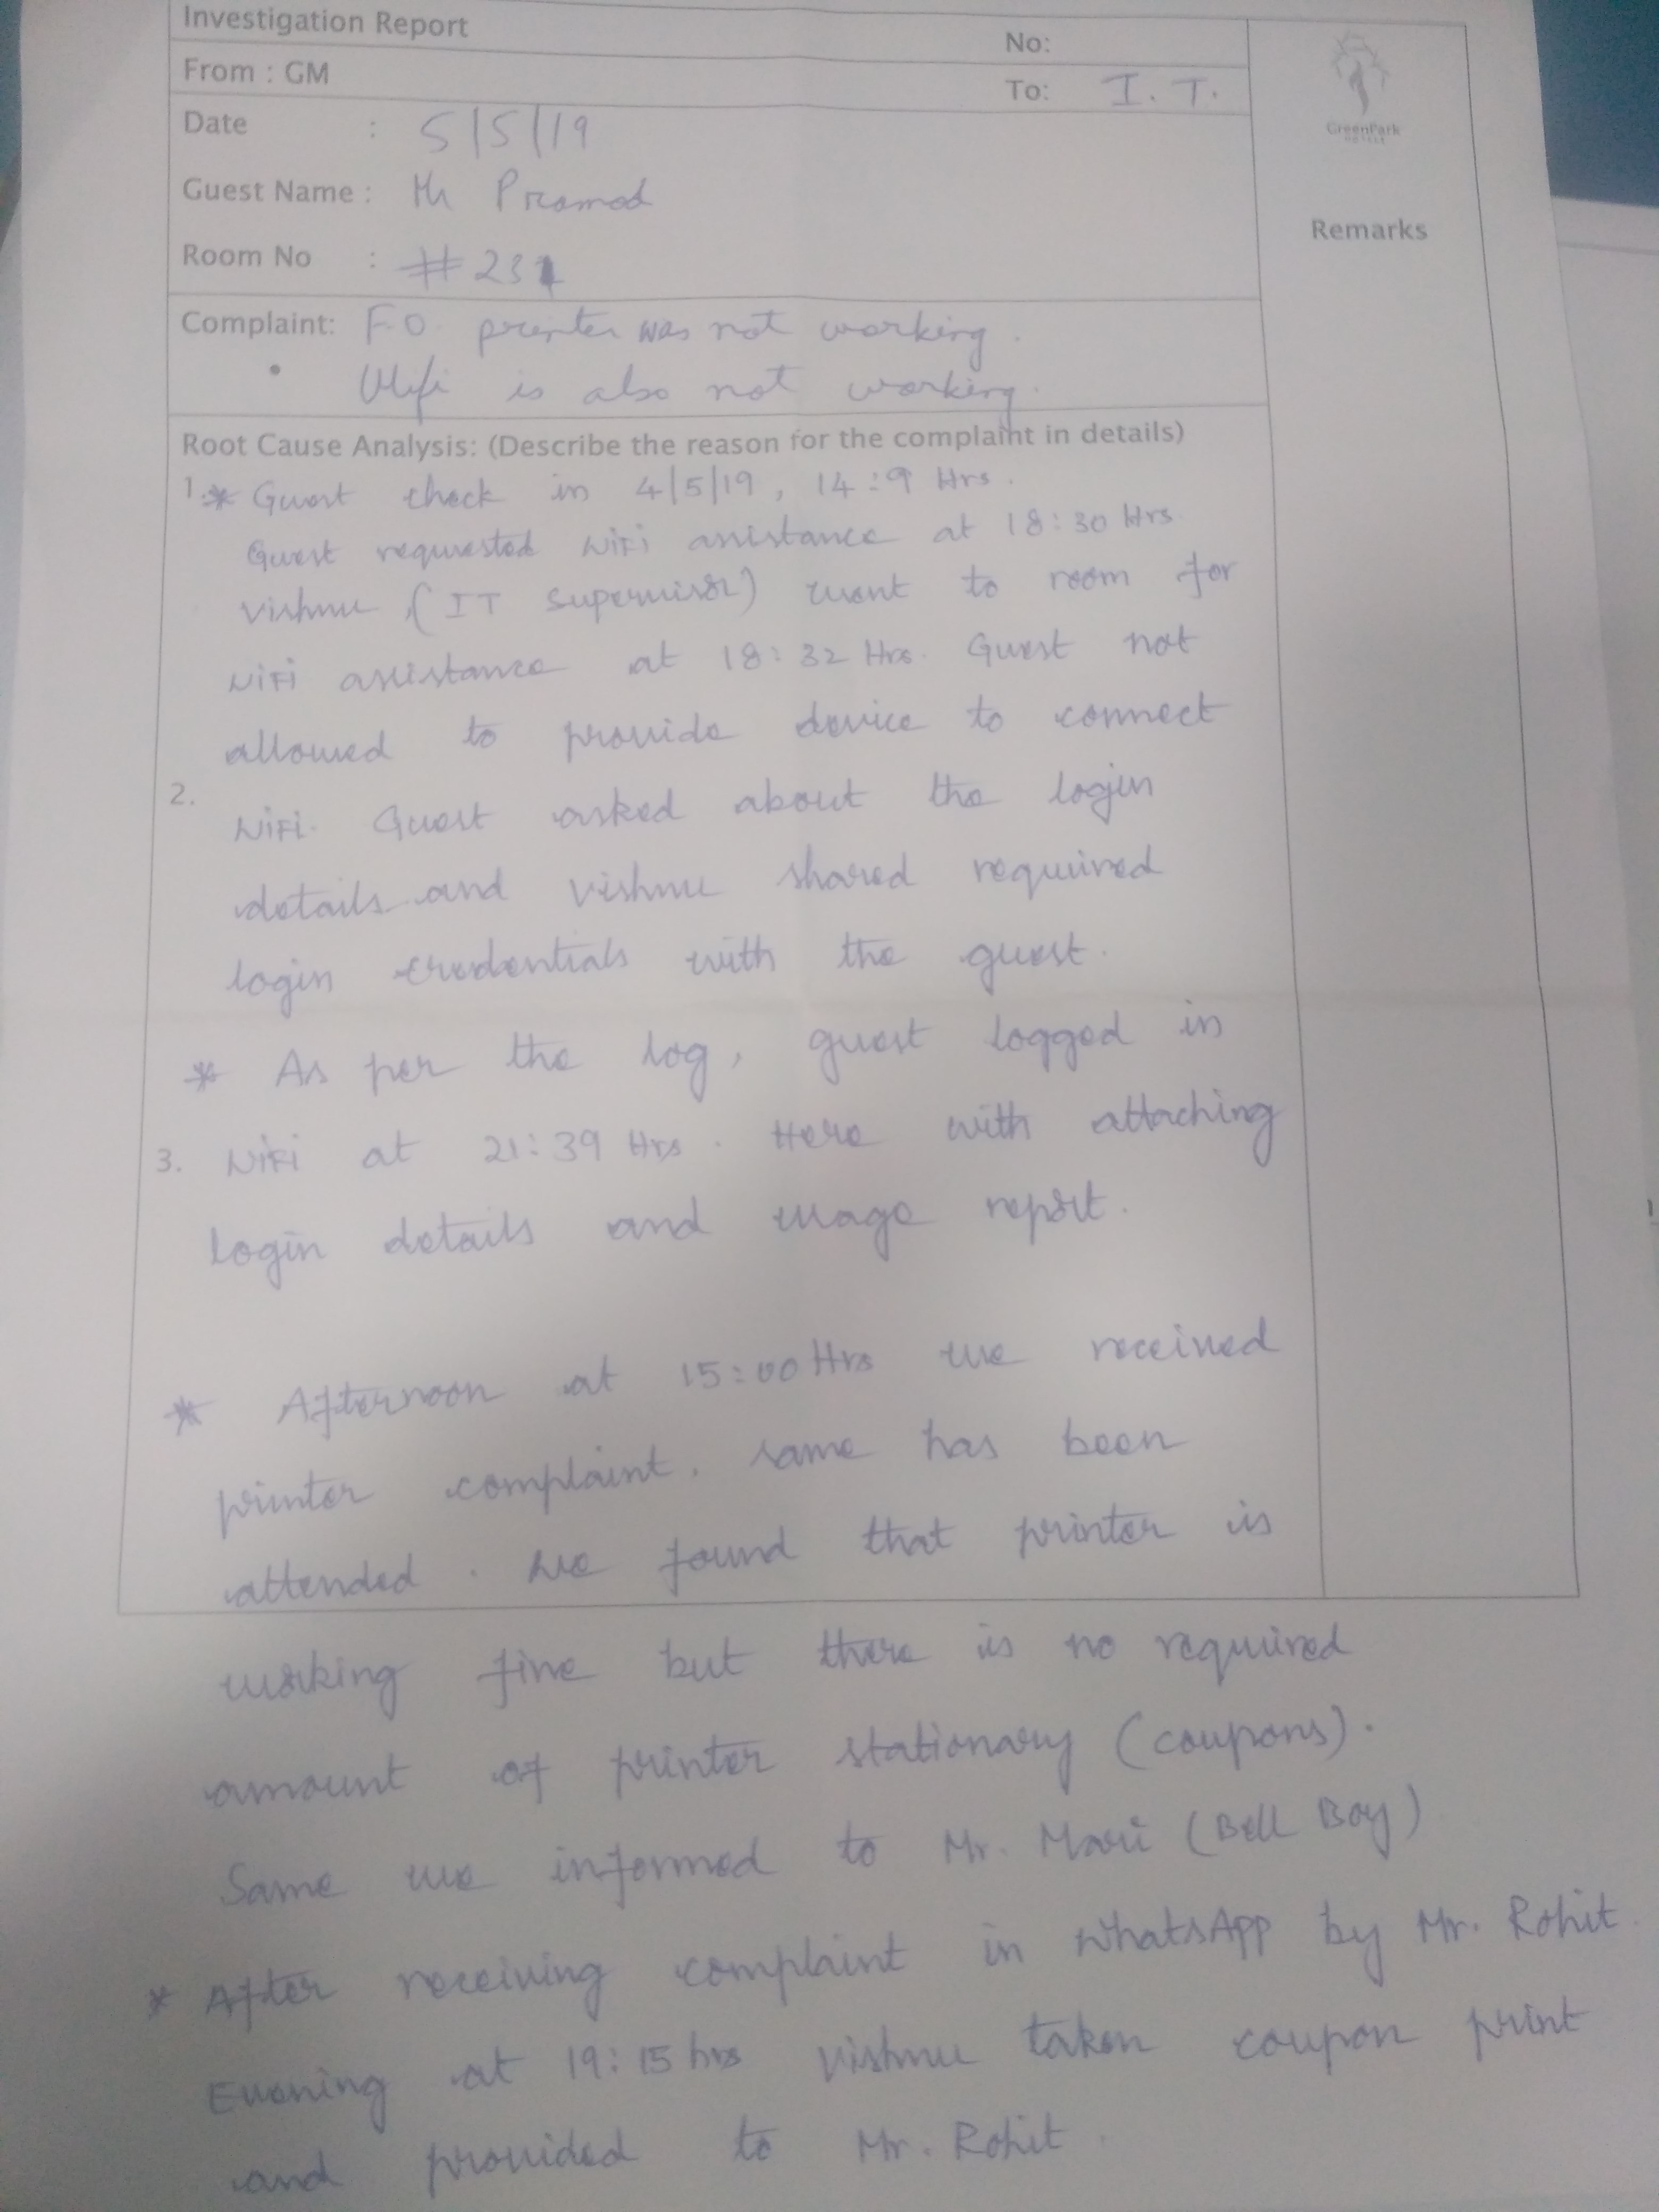 Investigation Report
No:
From : GM
To: I. T.
GreenPark
HOTELS
Date : 5/5/19
Guest Name : Mr Pramod
Remarks
Room No : # 231
Complaint: F.O. printer was not working.
Wifi is also not working.
Root Cause Analysis: (Describe the reason for the complaint in details)
1.* Guest check in 4/5/19, 14:9 Hrs.
Guest requested WiFi assistance at 18:30 Hrs.
Vishnu (IT Supervisor) went to room for
WiFi assistance at 18:32 Hrs. Guest not
allowed to provide device to connect
2. WiFi. Guest asked about the login
details and Vishnu shared required
login credentials with the guest.
* As per the log, guest logged in
3. WiFi at 21:39 Hrs. Here with attaching
login details and usage report.
* Afternoon at 15:00 Hrs we received
printer complaint, same has been
attended. We found that printer is
working fine but there is no required
amount of printer stationary (coupons).
Same we informed to Mr. Mari (Bell Boy)
* After receiving complaint in WhatsApp by Mr. Rohit
Evening at 19:15 hrs Vishnu taken coupon print
and provided to Mr. Rohit.